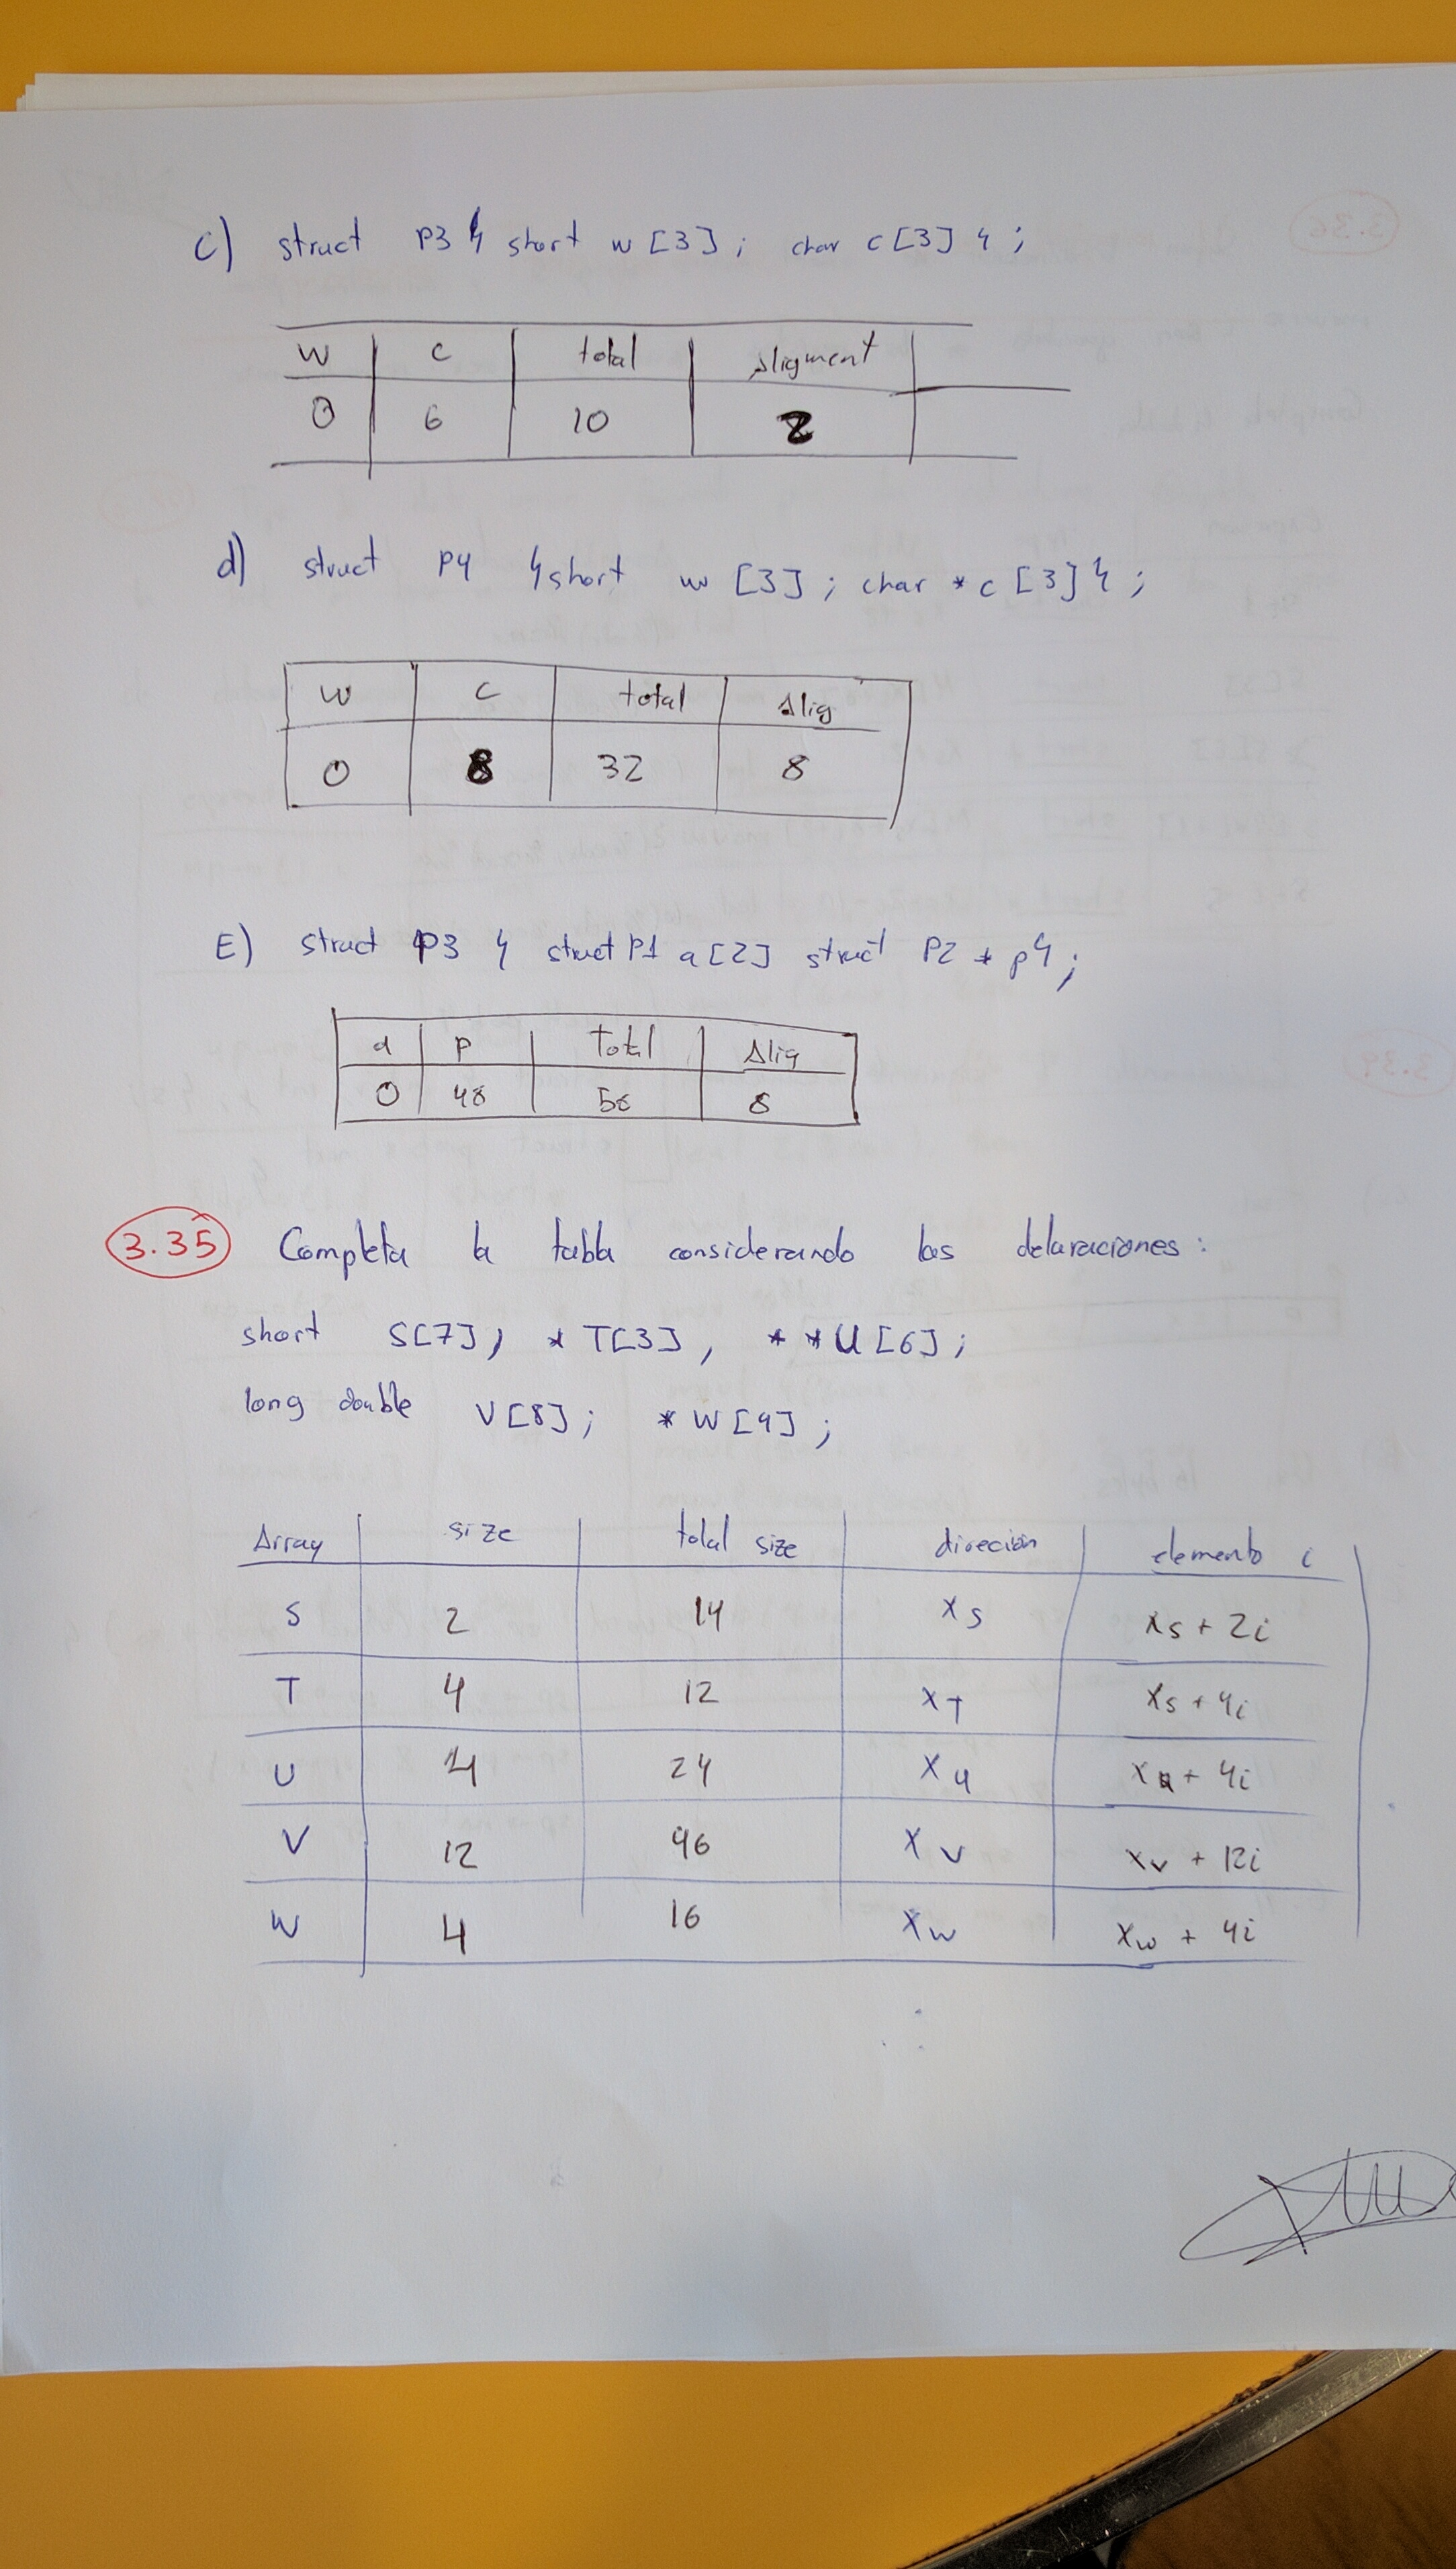 C) struct P3 { short w [3]; char c [3] };
W c total Aligment
0 6 10 2
d) struct P4 { short w [3]; char * c [3] };
W C total Alig
0 8 32 8
E) struct P3 { struct P1 a [2] struct P2 * p };
a P Total Alig
0 48 56 8
3.35 Completa la tabla considerando las delaraciones:
short S[7], * T[3], * * U [6];
long double V[8]; * W [4];
Array size total size direción elemento i
S 2 14 xS xs + 2i
T 4 12 xT xs + 4i
U 4 24 xu xu + 4i
V 12 96 xv xv + 12i
W 4 16 xw xw + 4i